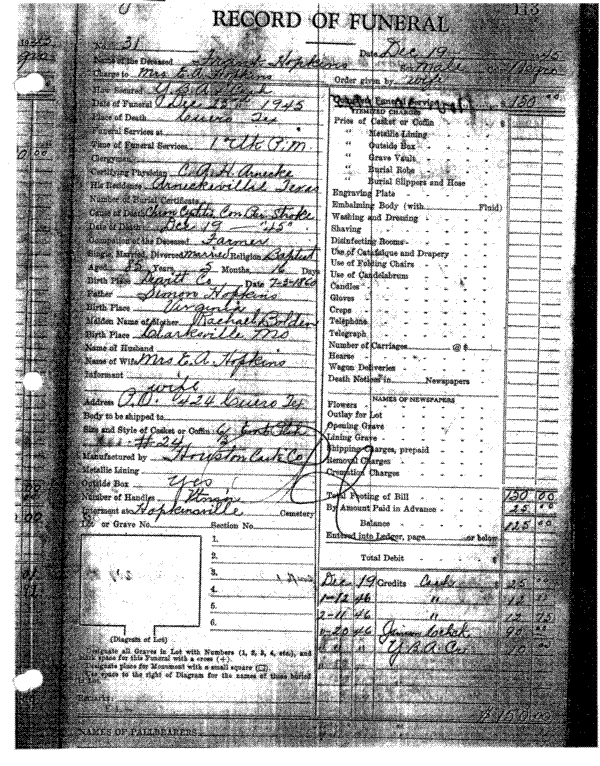 113
RECORD OF FUNERAL
No. 31 Date Dec 19 45
Name of the Deceased Frank Hopkins Male Negro
Charge to Mrs E.A. Hopkins Order given by wife
How Secured Y.B.A. & Cash
Date of Funeral Dec 23rd 1945
Place of Death Cuero Tex
Funeral Services at
Time of Funeral Services 1 P.M.
Clergyman
Certifying Physician C.A.H. Arnecke
His Residence Arneckeville Texas
Number of Burial Certificate
Cause of Death Stroke
Date of Death Dec 19 - "45"
Occupation of the Deceased Farmer
Single, Married, Divorced Married Religion Baptist
Aged 85 Years 5 Months, 16 Days
Birth Place Dewitt Co Date 7-3-1860
Father Simon Hopkins
Birth Place Virginia
Maiden Name of Mother Rachael Bolden
Birth Place Clarksville Mo
Name of Husband
Name of Wife Mrs E.A. Hopkins
Informant
wife
Address P.O. 424 Cuero Tex
Body to be shipped to
Size and Style of Casket or Coffin 6/
#24
Manufactured by Houston Cask Co
Metallic Lining
Outside Box Yes
Number of Handles
Interment at Hopkinsville Cemetery
Lot or Grave No. Section No.
1.
2.
3.
4.
5.
6.
(Diagram of Lot)
Designate all Graves in Lot with Numbers (1, 2, 3, 4, etc.), and
mark space for this Funeral with a cross (+).
Designate place for Monument with a small square (□).
Use space to the right of Diagram for the names of those buried
Remarks
NAMES OF PALLBEARERS
Complete Funeral Service $ 150 00
ITEMIZED CHARGES
Price of Casket or Coffin $
" Metallic Lining
" Outside Box
" Grave Vault
" Burial Robe
" Burial Slippers and Hose
Engraving Plate
Embalming Body (with Fluid)
Washing and Dressing
Shaving
Disinfecting Rooms
Use of Catafalque and Drapery
Use of Folding Chairs
Use of Candelabrum
Candles
Gloves
Crepe
Telephone
Telegraph
Number of Carriages @ $
Hearse
Wagon Deliveries
Death Notices in Newspapers
NAMES OF NEWSPAPERS
Flowers
Outlay for Lot
Opening Grave
Lining Grave
Shipping Charges, prepaid
Removal Charges
Cremation Charges
Total Footing of Bill 150 00
By Amount Paid in Advance 25 00
Balance 125 00
Entered into Ledger, page or below
Total Debit $
Dec 19 Credits Cash $ 25 00
1-12 46 " 12
2-11 46 " 12 75
1-20 46 90
" " Y.B.A. Co. 10
$150.00